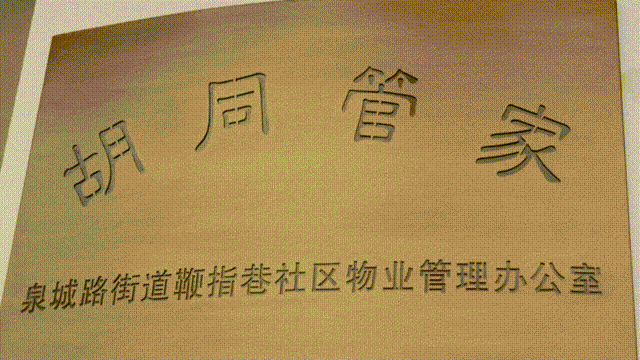 胡同管家
泉城路街道鞭指巷社区物业管理办公室